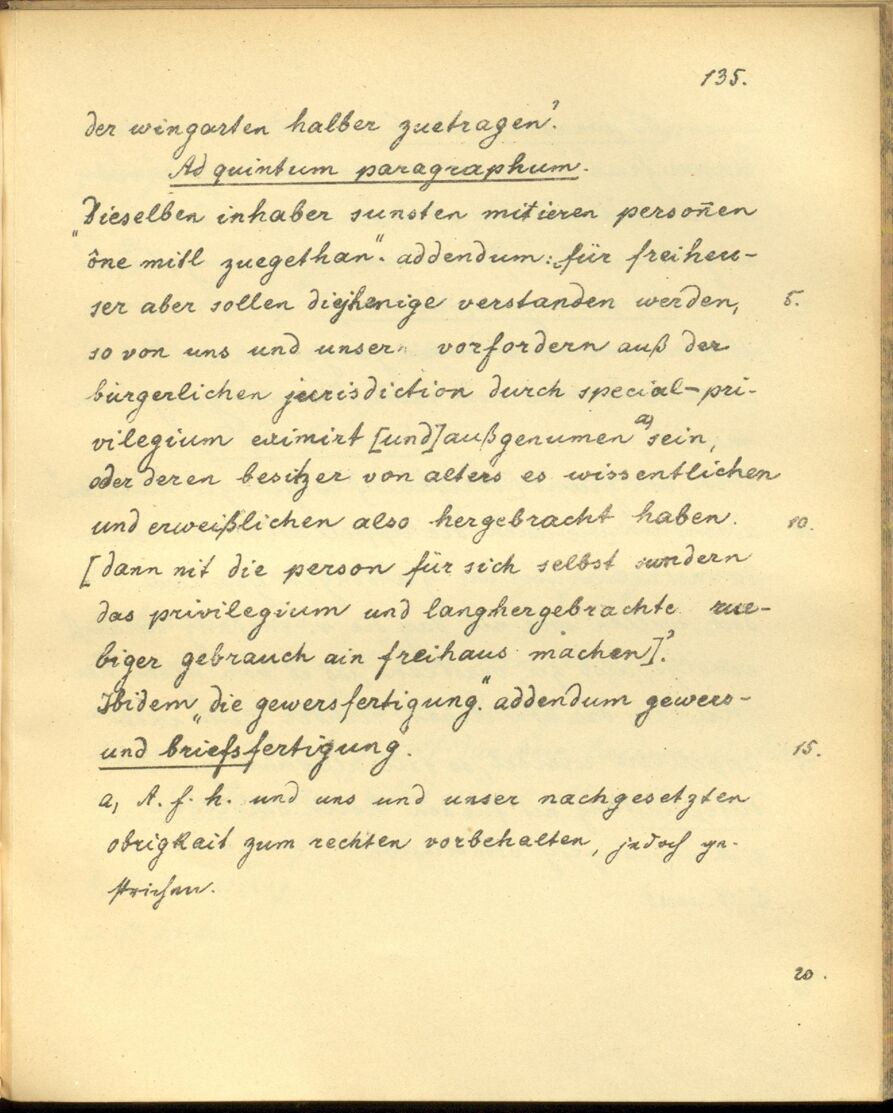 135.
der wingarten halber zuetragen?.
Ad quintum paragraphum.
"Dieselben inhaber sunsten mitieren persoñen
ône mitl zuegethan". addendum: „für freiheu-
ser aber sollen diejhenige verstanden werden, 5.
so von uns und unsern vorfordern auß der
bürgerlichen jurisdiction durch special-pri-
vilegium eximirt [und] außgenumen a) sein,
oder deren besitzer von alters es wissentlichen
und erweißlichen also hergebracht haben. 10.
[dann nit die person für sich selbst sundern
das privilegium und langhergebrachte rue-
biger gebrauch ain freihaus machen]?
Ibidem „die gewersfertigung." addendum gewers-
und briefsfertigung". 15.
a, A. f. h. und uns und unser nachgesetzten
obrigkait zum rechten vorbehalten, jedoch ge-
strichen.
20.